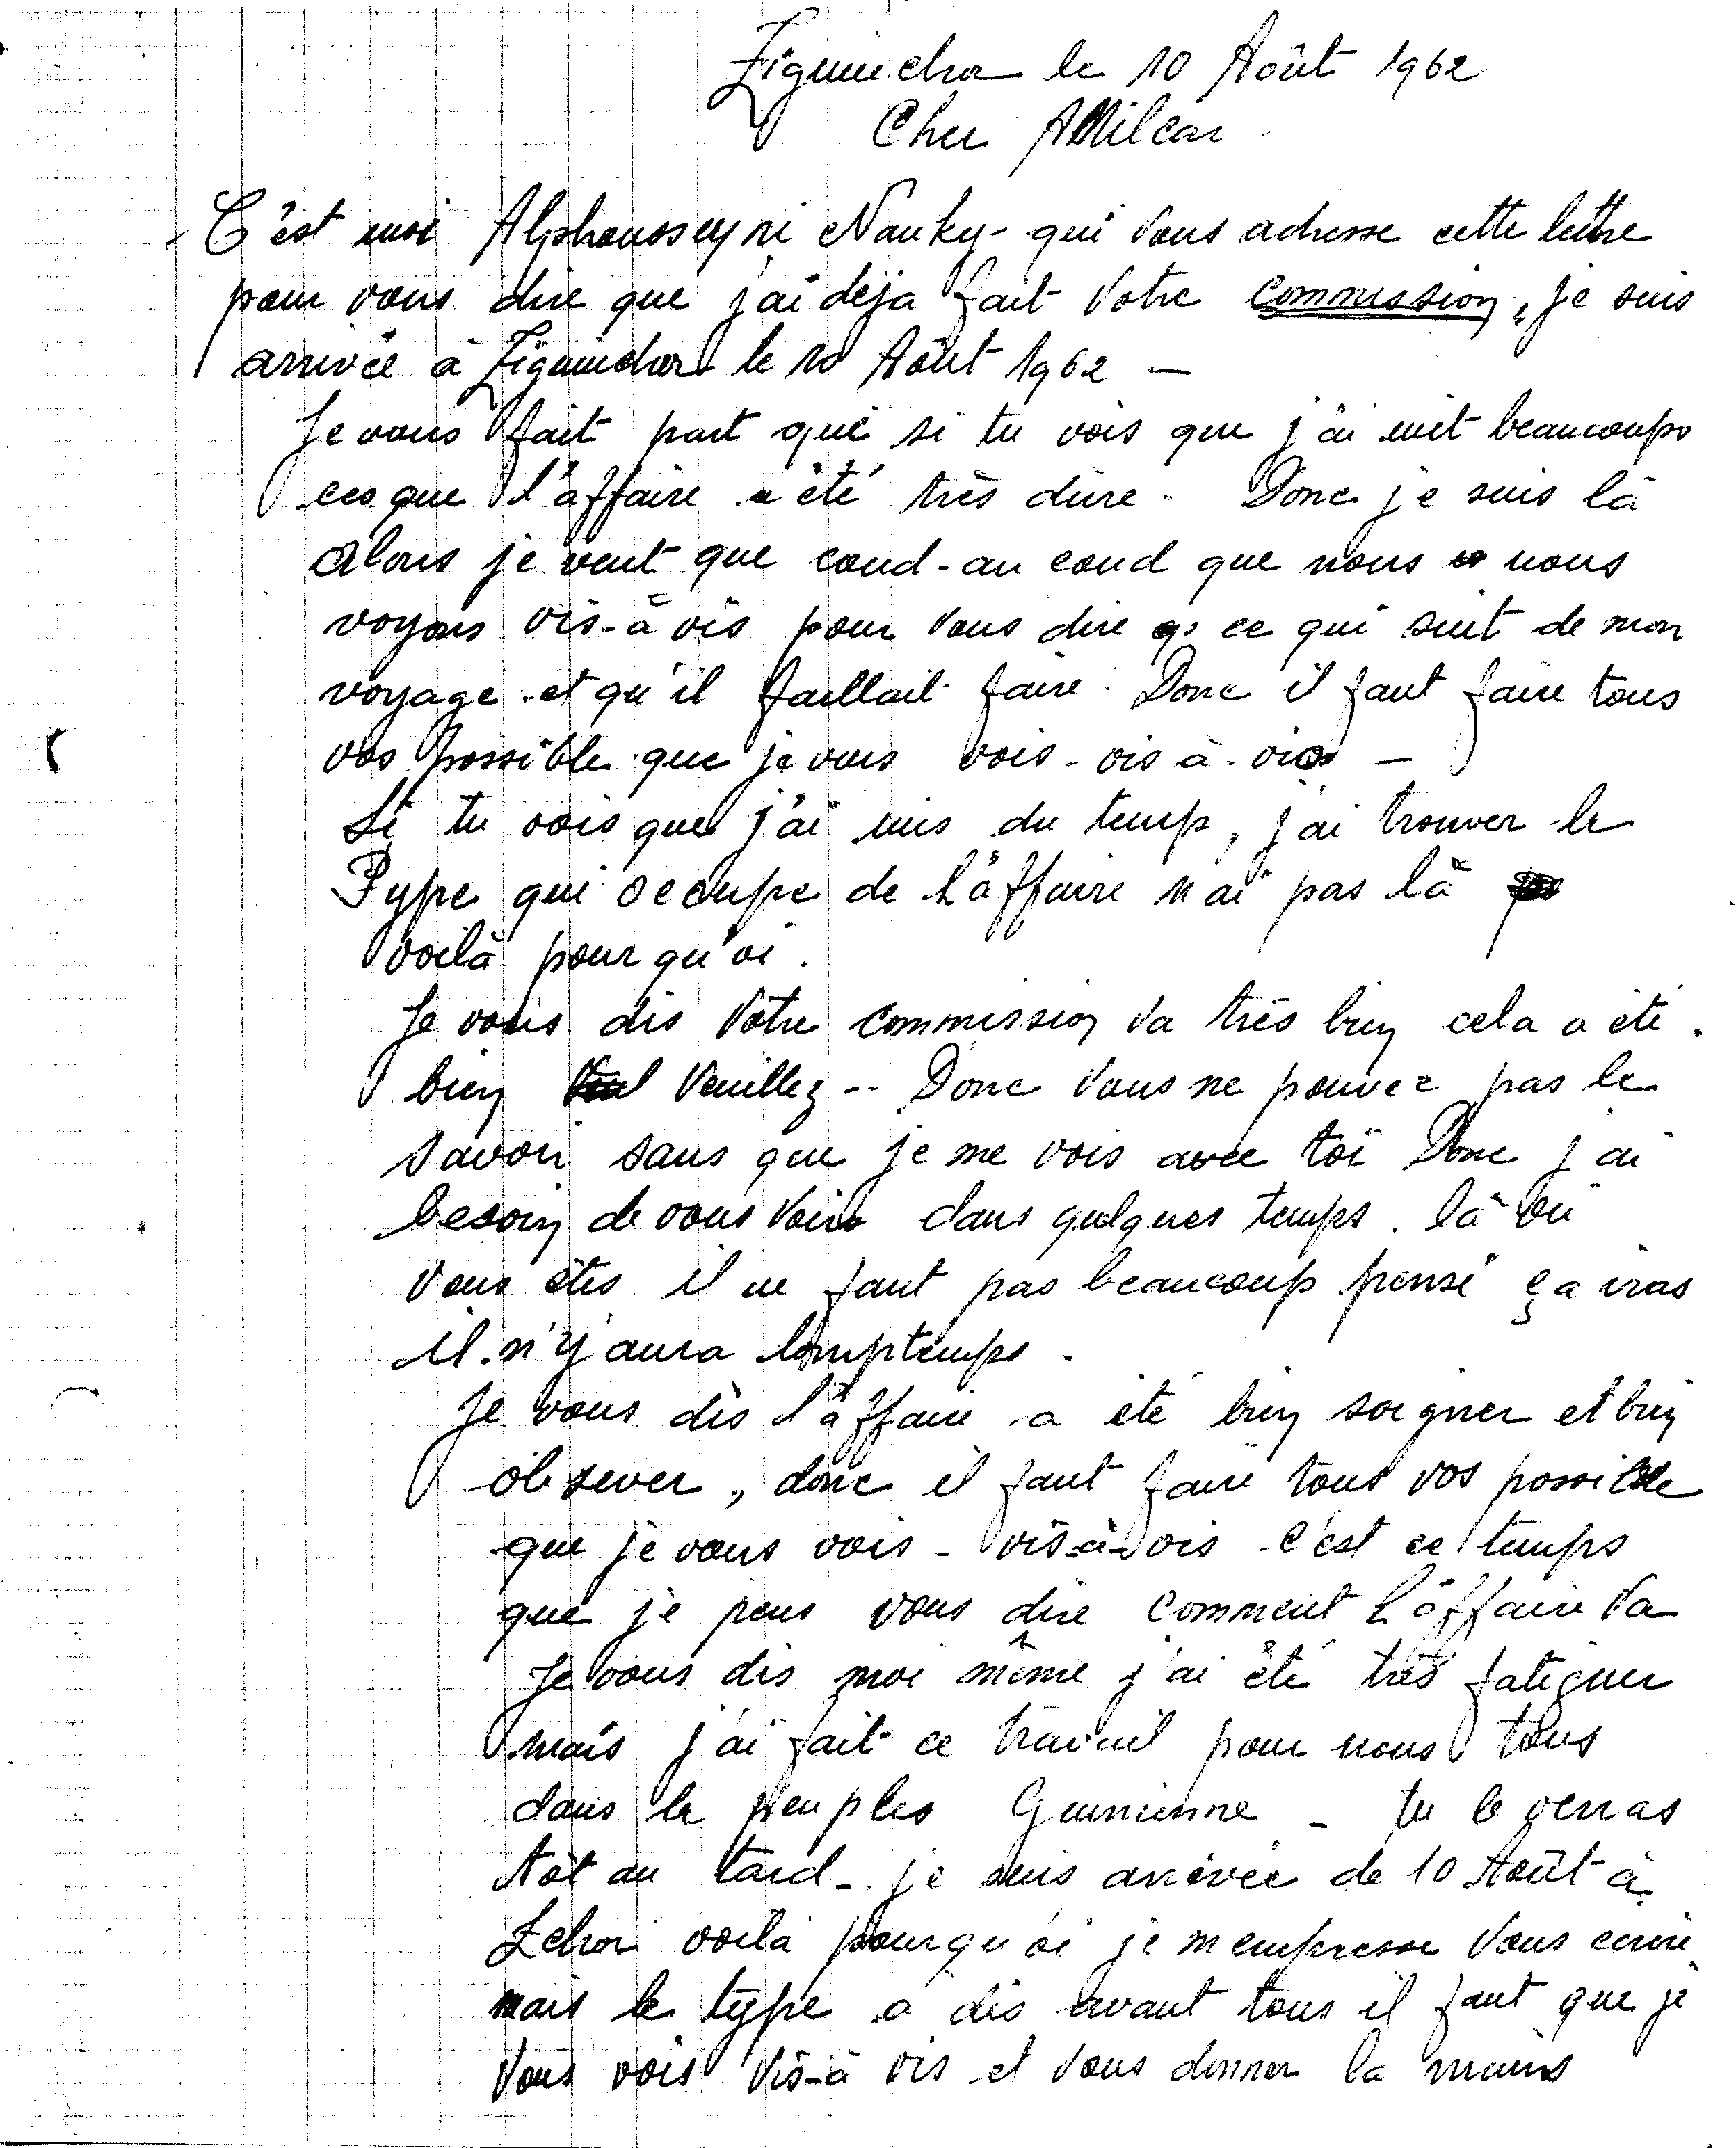 Ziguinchor le 10 Août 1962
Cher AMilcar
C'est moi Alphousseyni Nanky - qui vous adresse cette lettre
pour vous dire que j'ai déja fait votre commission, je suis
arrivée à Ziguinchor le 10 Août 1962 —
Je vous fait part que si tu vois que j'ai mit beaucoups
ces que l'affaire a été très dûre. Donc je suis là
alors je veut que coud-au coud que nous nous
voyons vis-à vis pour vous dire ce qui suit de mon
voyage et qu'il faillait faire. Donc il faut faire tous
vos possible que je vous vois - vis à - vis —
Si tu vois que j'ai mis du temp, j'ai trouver le
Type qui occupe de l'affaire n'ai pas là
voilà pourqu'oi.
Je vous dis vôtre commission va très bien cela a été.
bien veuillez -- Donc vous ne pouvez pas le
savoir sans que je me vois avec toi Donc j'ai
besoin de vous voir dans quelques temps. là où
vous êtes il ne faut pas beaucoup pensé ça iras
il n'y aura lomptemps.
Je vous dis l'affaire a été bien soigner et bien
obsever, donc il faut faire tous vos possible
que je vous vois - vis-à-vis c'est ce temps
que je peus vous dire comment l'affaire va
Je vous dis moi même j'ai été très fatiguer
mais j'ai fait ce travail pour nous tous
dans le peuples Guinienne - tu le verras
tôt au tard - je suis arrivée de 10 Août à
Zchor voilà pourqu'oi je m'empresse vous ecrire
mais le type a dis avant tous il faut que je
vous vois vis-à vis et vous donner la mains